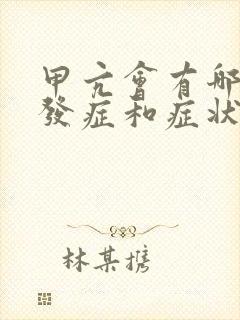 甲亢會有哪
發症和症狀
林某携